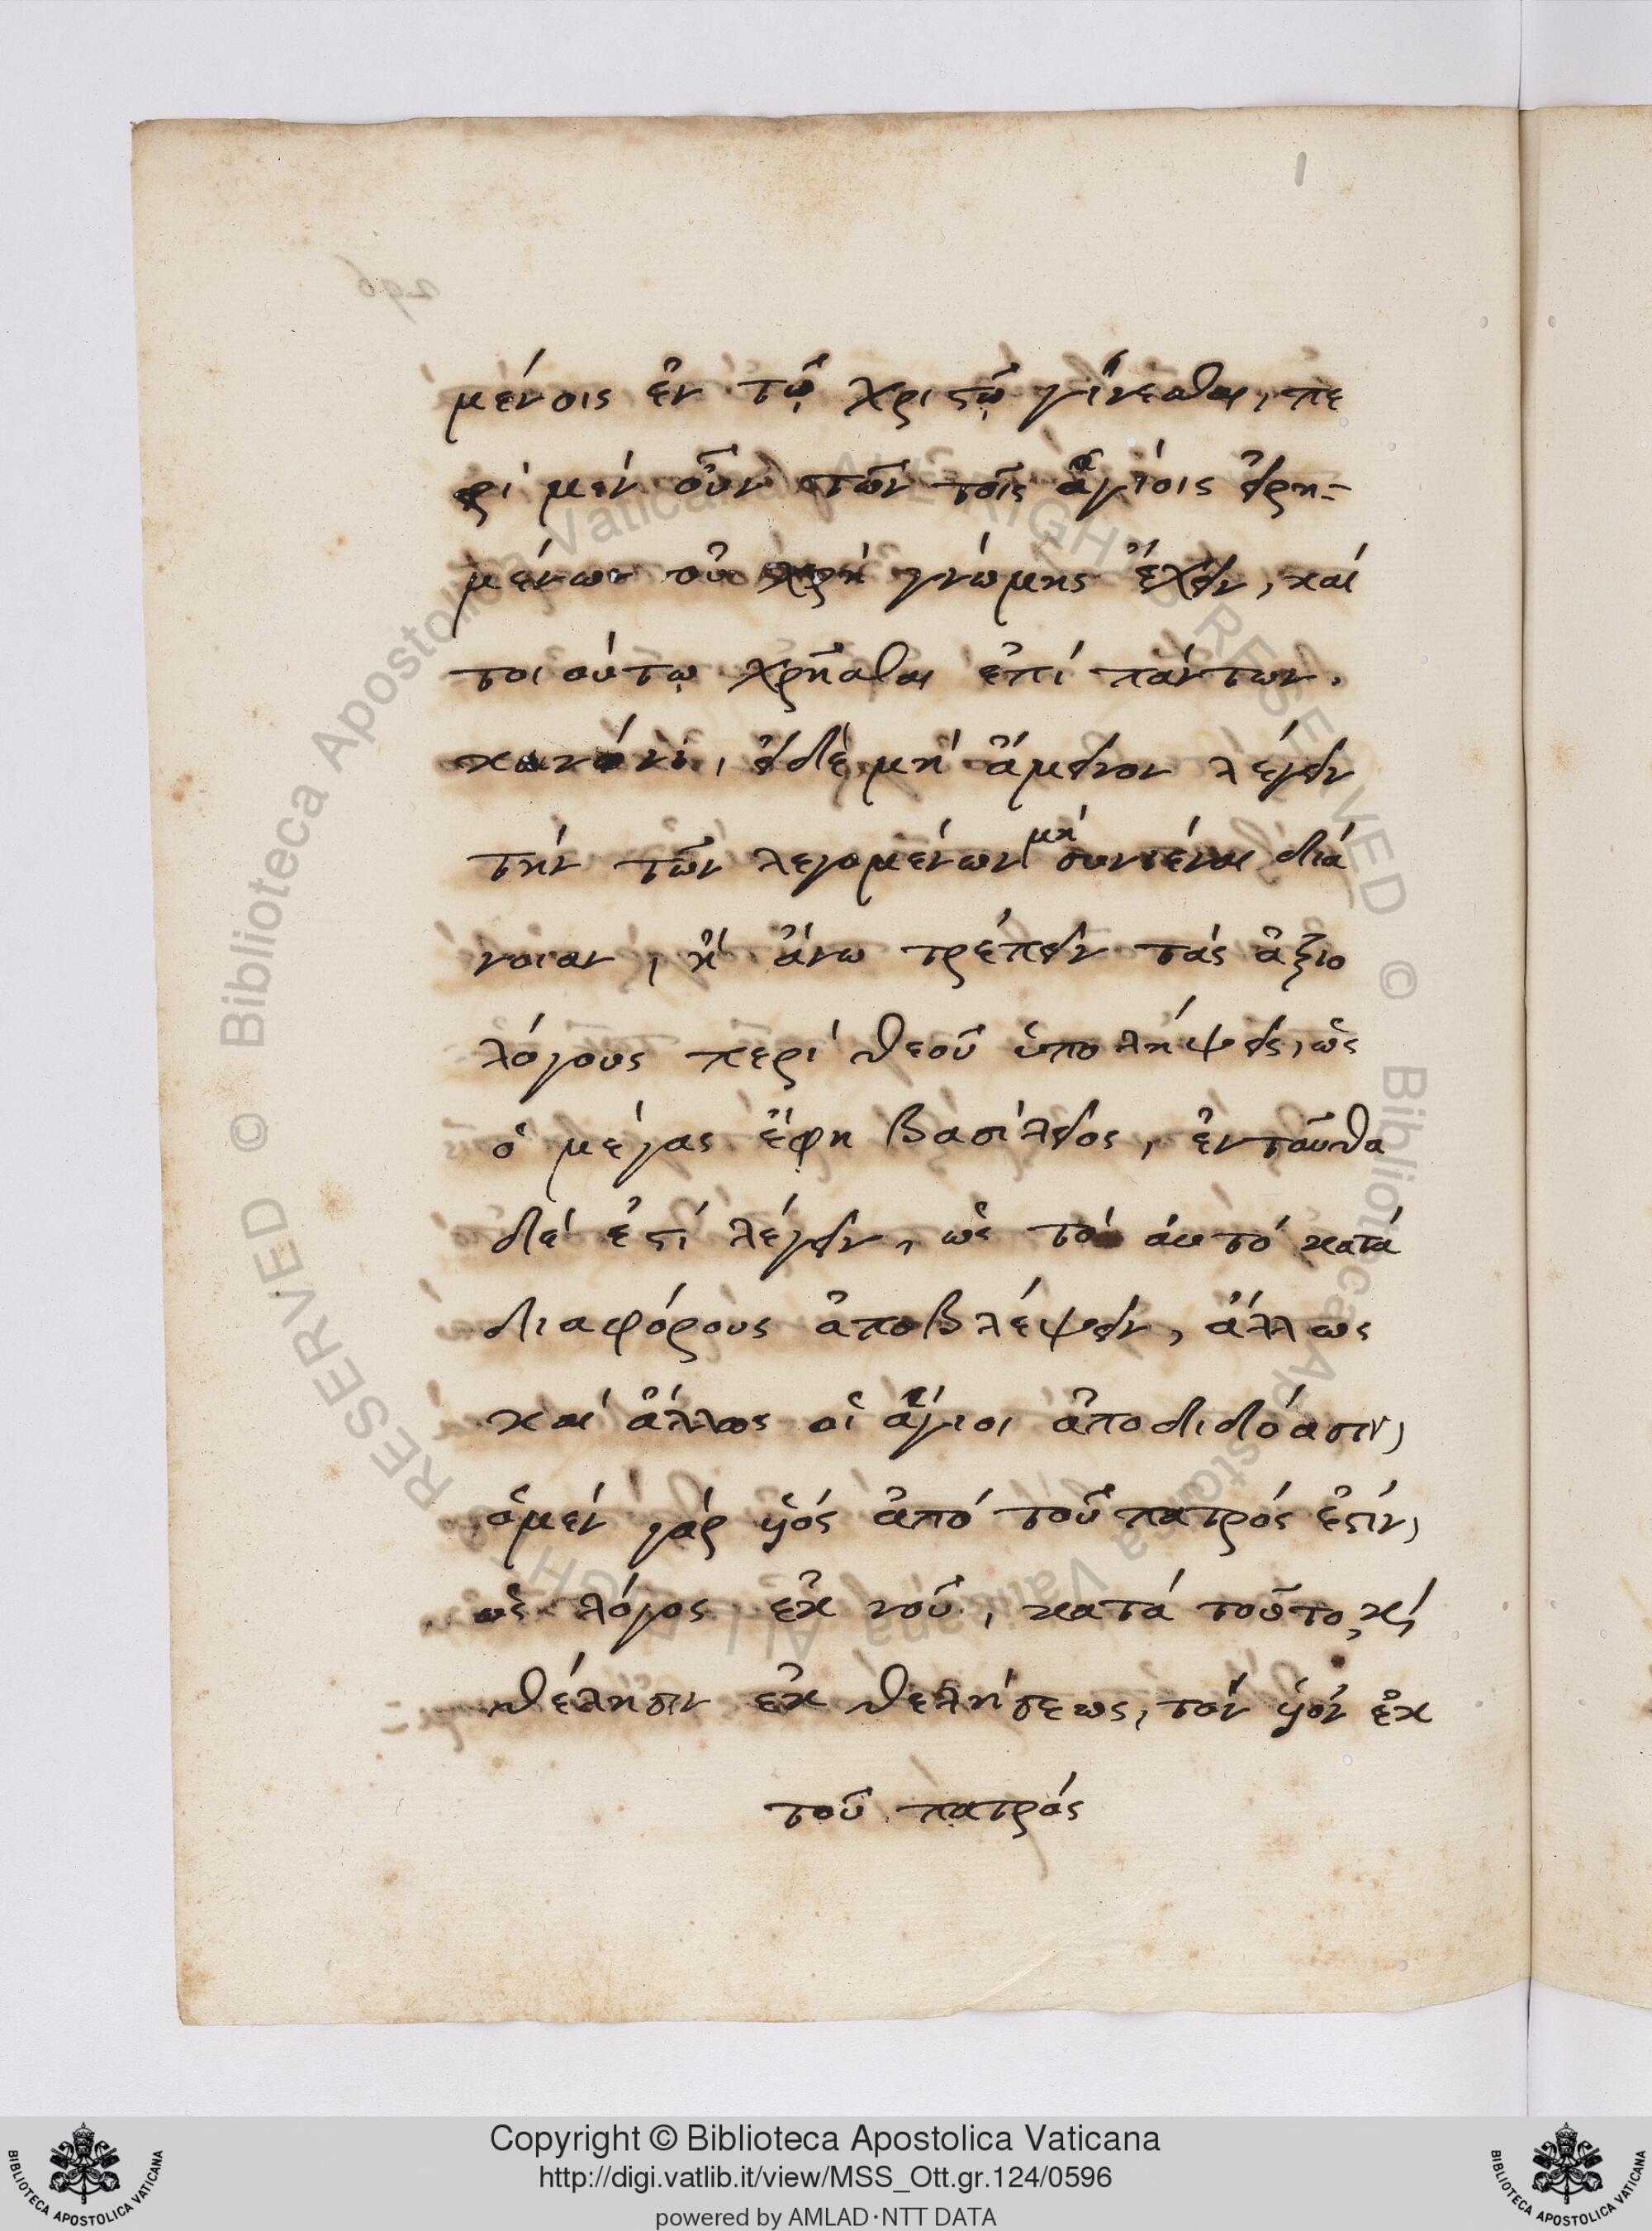 μένοις ἐν τῷ χριστῷ γίνεσθαι, πε
ρὶ μὲν οὖν τῶν τοῖς ἁγίοις εἰρη-
μένων οὕ χρὴ γνώμης ἔχειν, καί
τοιούτῳ χρῆσθαι ἐπὶ πάντων.
κανόνι, εἰδὲ μὴ ἄμεινον λέγειν
τὴν τῶν λεγομένων μὴ συνιέναι διά
νοιαν, ἢ ἄνω τρέπειν τὰς ἀξιο
λόγους περὶ θεοῦ ὑπολήψεις, ὡς
ὁ μέγας ἔφη βασίλειος, ἐνταῦθα
δέ ἐστί λέγειν, ὡς τὸ ἀυτὸ κατὰ
διαφόρους ἀποβλέψειν, ἄλλως
καὶ ἄλλως οἱ ἅγιοι ἀποδιδόασιν,
ὁμὲν γὰρ ὑιὸς ἀπὸ τοῦ πατρός ἐστίν,
ὡς λόγος ἐκ νοῦ, κατὰ τοῦτο, κὶ
θέλησιν ἐκ θελήσεως, τὸν ὑιὸν ἐκ
τοῦ πατρὸς
Copyright © Biblioteca Apostolica Vaticana
http://digi.vatlib.it/view/MSS_Ott.gr.124/0596
powered by AMLAD·NTT DATA
BIBLIOTECA APOSTOLICA VATICANA
BIBLIOTECA APOSTOLICA VATICANA
© Biblioteca Apostolica Vaticana ALL RIGHTS RESERVED
© Biblioteca Apostolica Vaticana ALL RIGHTS RESERVED